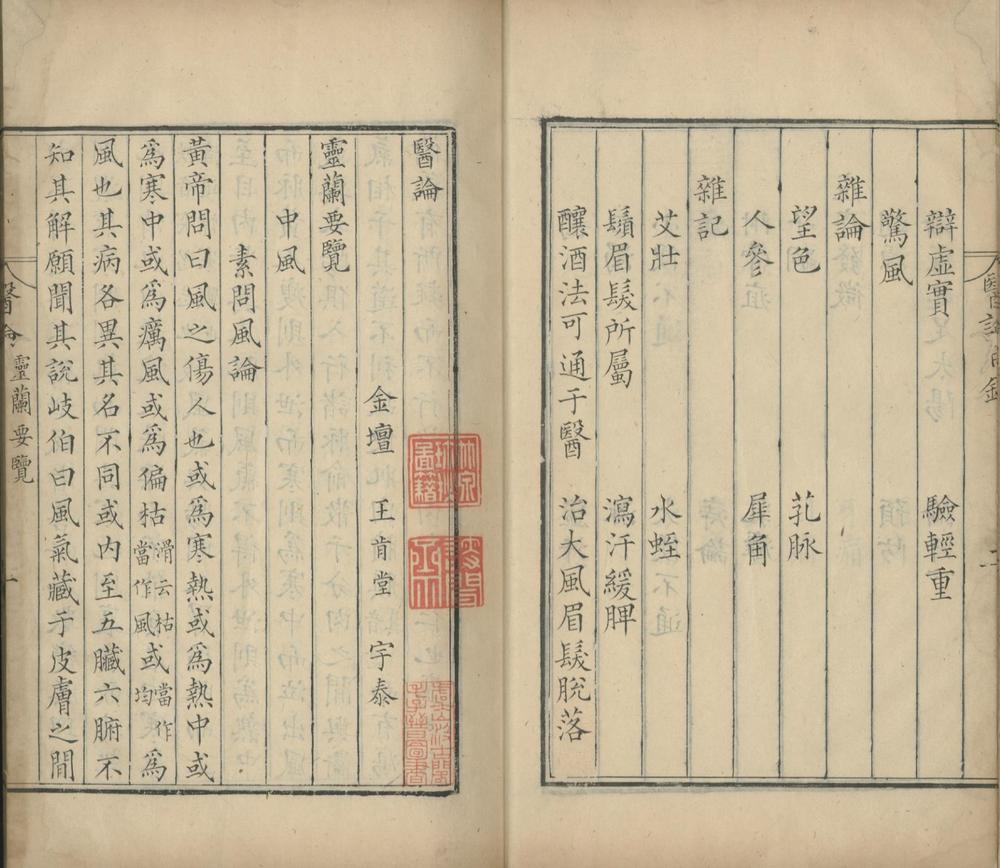 辯虛實　驗輕重
驚風
雜論
望色　芤脉
人參　犀角
雜記
艾壯　水蛭
鬚眉髮所屬　瀉汗緩脾
釀酒法可通于醫　治大風眉髮脫落
醫論
金壇　王肯堂　宇泰
靈蘭要覽
中風
素問風論
黃帝問曰風之傷人也或爲寒熱或爲熱中或
爲寒中或爲癘風或爲偏枯滑云枯當作風或當作均爲
風也其病各異其名不同或內至五臟六腑不
知其解願聞其說岐伯曰風氣藏于皮膚之間
醫論　靈蘭要覽　一